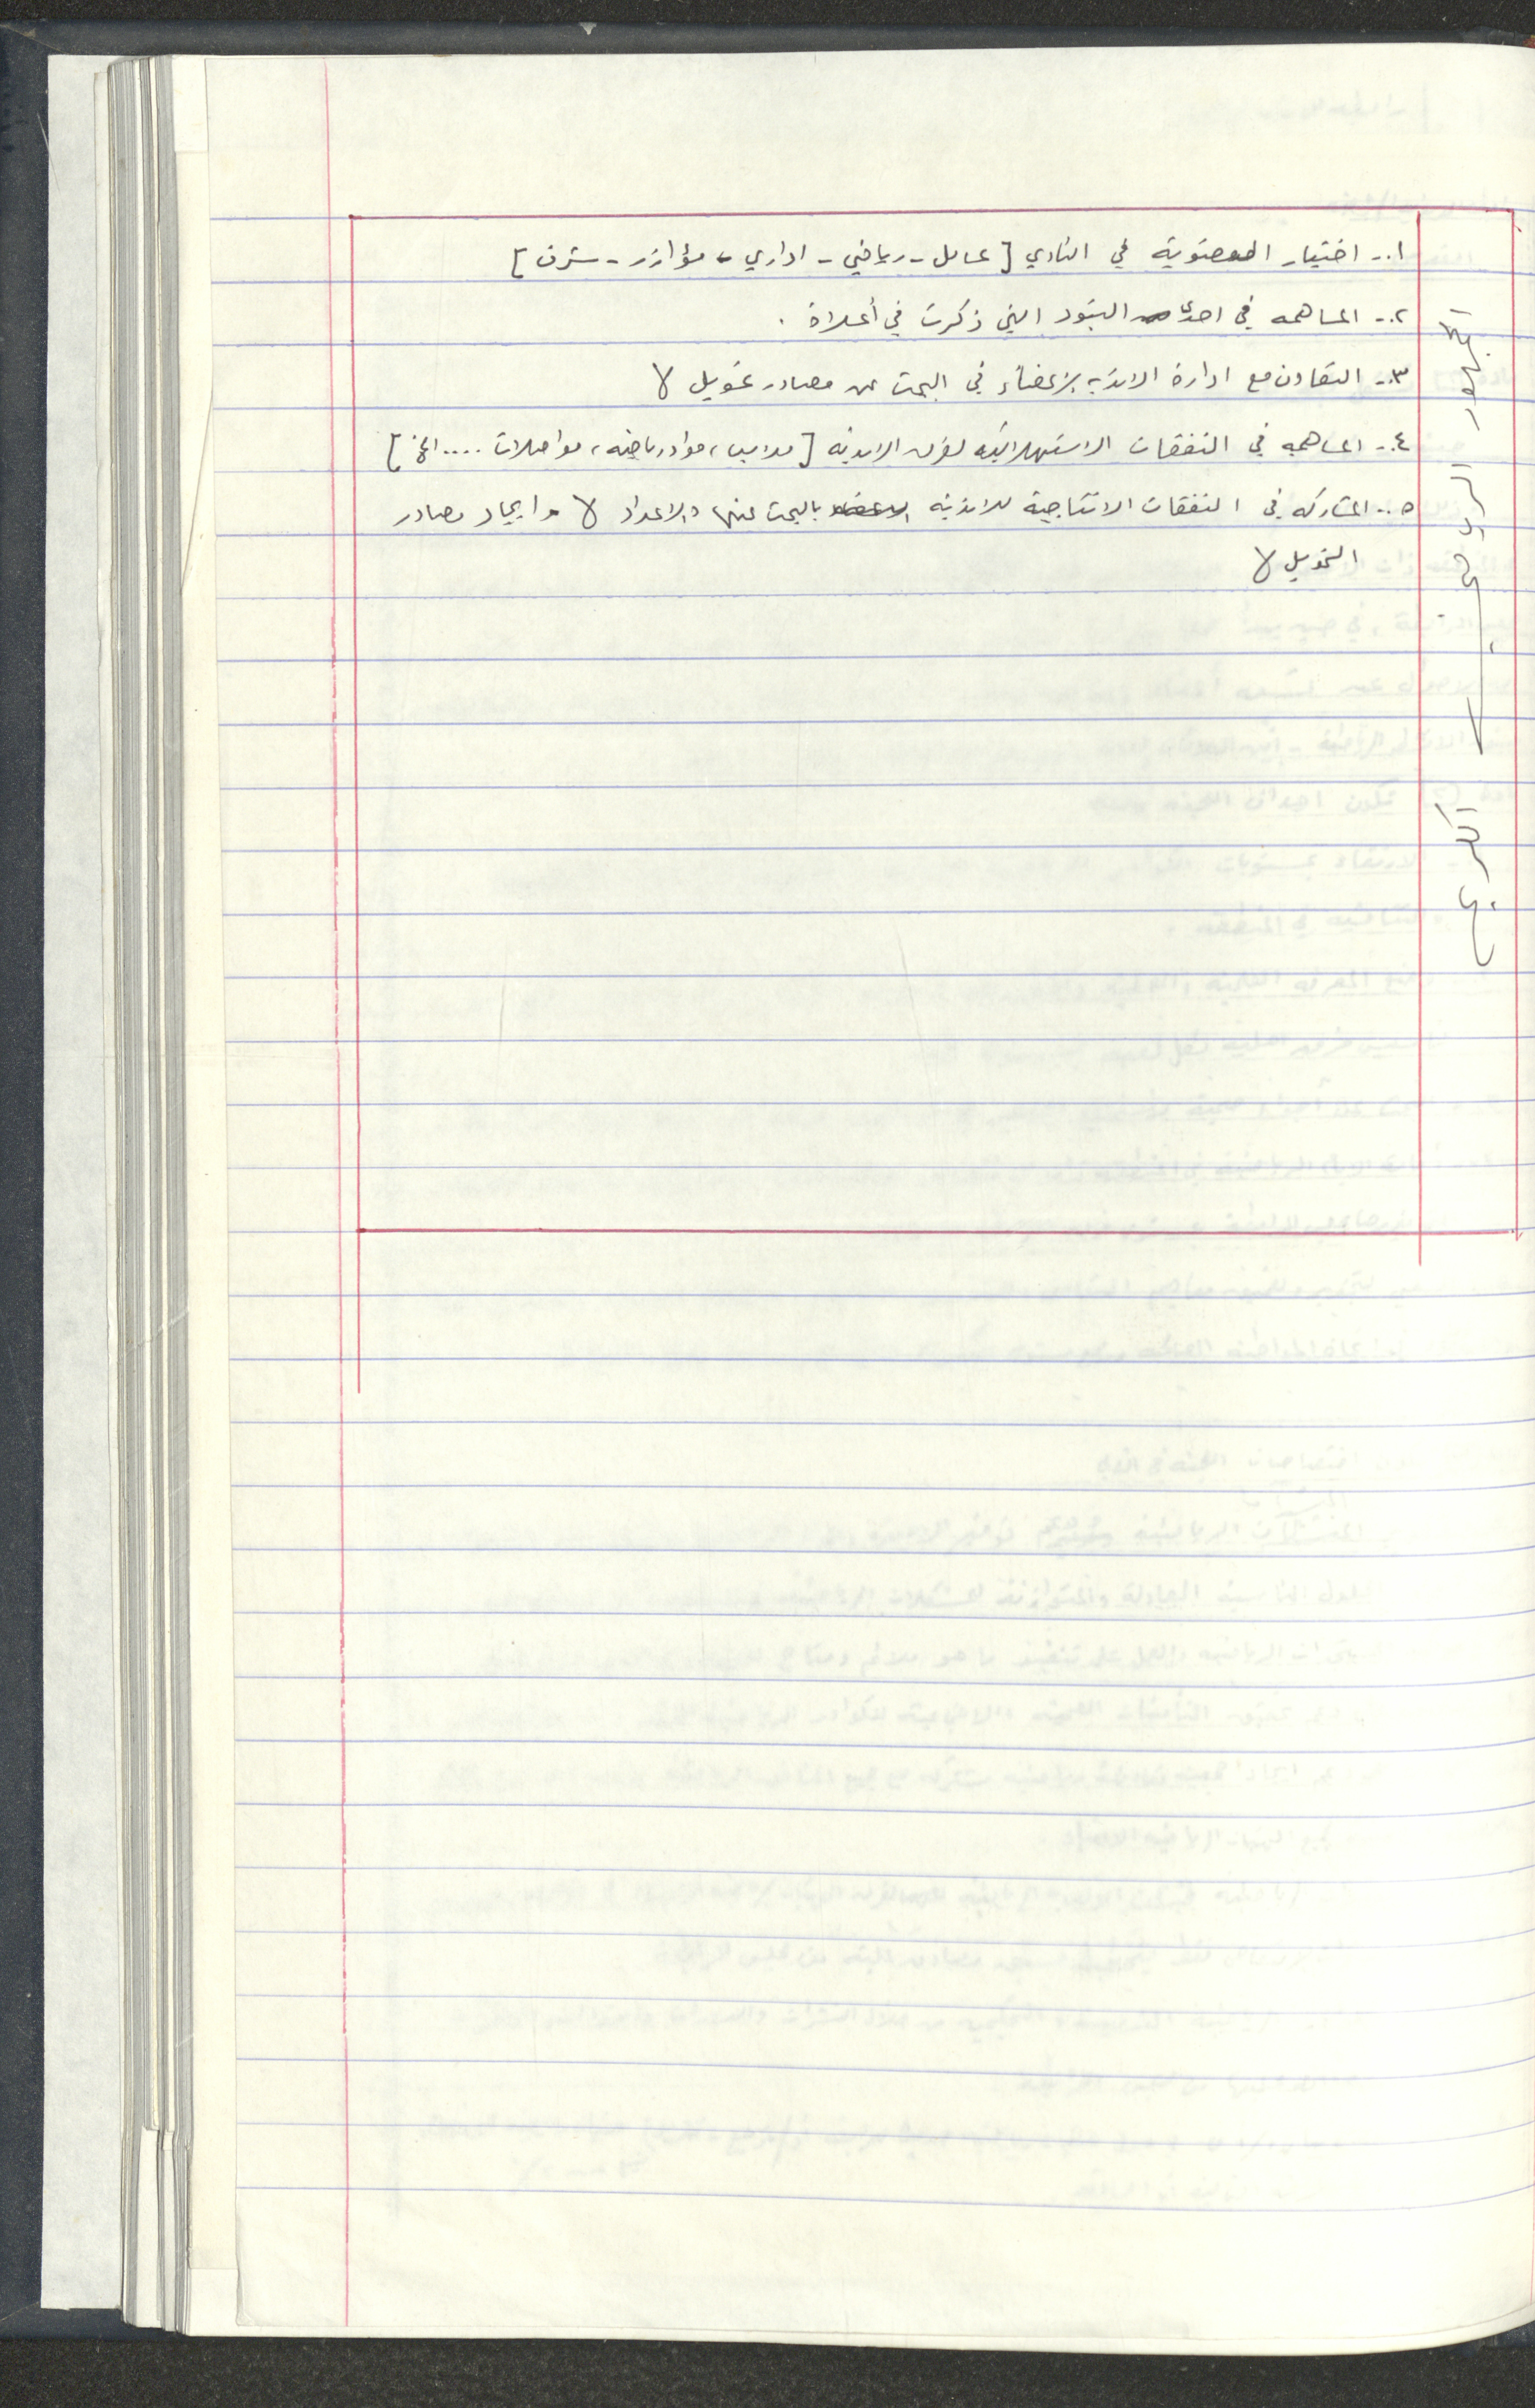 الجمهور الرياضي الكريم
١.- اختيار العضوية في النادي [عامل - رياضي - اداري - مؤازر - شرف]
٢.- المساهمه في احدى البنود التي ذكرت في أعلاه .
٣.- التعاون مع ادارة الانديه في البحث عن مصادر تمويل لها
٤.- المساهمه في النفقات الاستهلاكيه لفرق الانديه [ملابس، مواد رياضيه، مواصلات .... الخ]
٥.- المشاركه في النفقات الانتاجية للانديه بالبحث عنها والاعداد لها وايجاد مصادر
التمويل لها